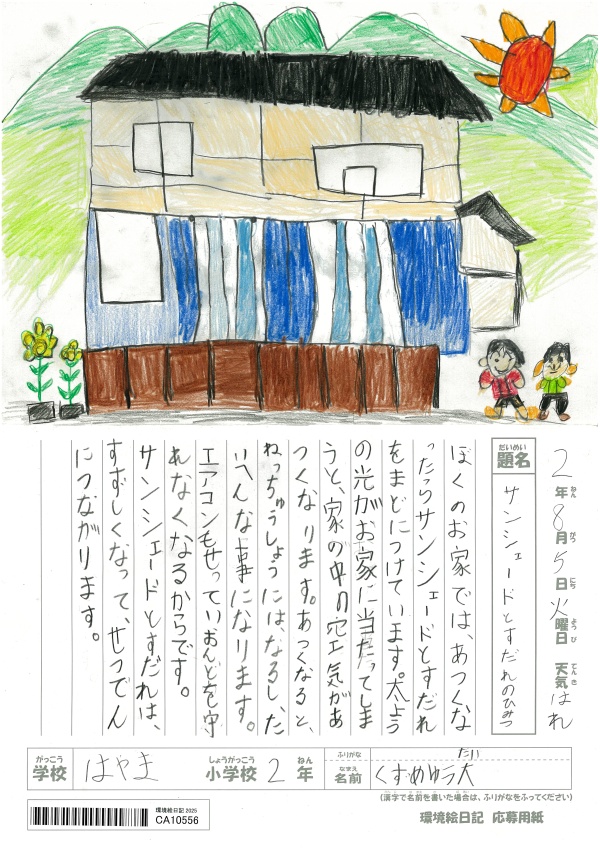 2年8月5日火曜日 天気はれ
ねん がつ にち ようび てんき
だいめい
題名
サンシェードとすだれのひみつ
ぼくのお家では、あつくな
ったらサンシェードとすだれ
をまどにつけています。太よう
の光がお家に当たってしま
うと、家の中の空気があ
つくなります。あつくなると、
ねっちゅうしょうにはなるし、た
いへんな事になります。
エアコンもせっていおんどを守
れなくなるからです。
サンシェードとすだれは、
すずしくなって、せつでん
につながります。
がっこう
学校
はやま
しょうがっこう
小学校
2
ねん
年
ふりがな
たい
なまえ
名前
くずめゆう大
(漢字で名前を書いた場合は、ふりがなをふってください)
環境絵日記 2025
CA10556
環境絵日記 応募用紙